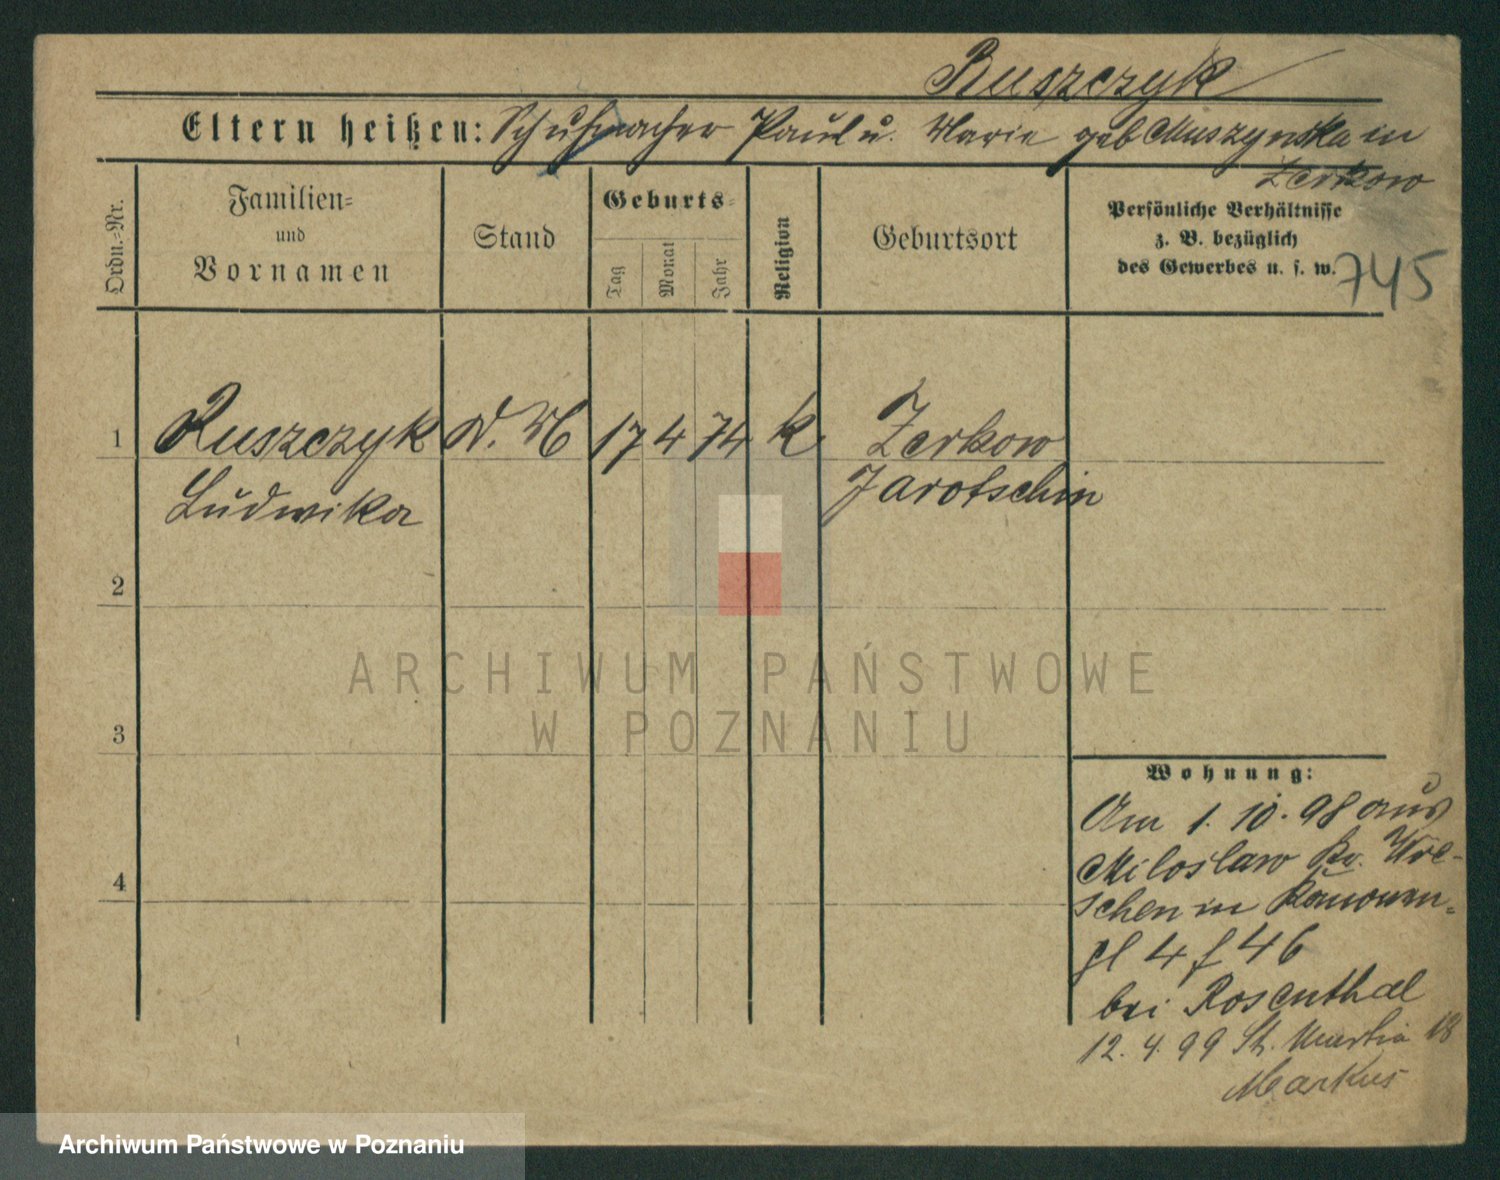 Ruszczyk
Eltern heißen: Schuhmacher Paul u. Marie geb Muszynska in
Zerkow
Ordn.-Nr.
Familien-
und
Vornamen
Stand
Geburts-
Tag
Monat
Jahr
Religion
Geburtsort
Persönliche Verhältnisse
z. B. bezüglich
des Gewerbes u. s. w.
745
1 Ruszczyk D. M 17 4 74 k Zerkow
Ludwika Jarotschin
2
3
4
Wohnung:
Am 1. 10. 98 aus
Miloslaw Kr. Wre-
schen in
pl 4 f 46
bei Rosenthal
12. 4. 99 St. Martin 18
Markus
ARCHIWUM PAŃSTWOWE
W POZNANIU
Archiwum Państwowe w Poznaniu